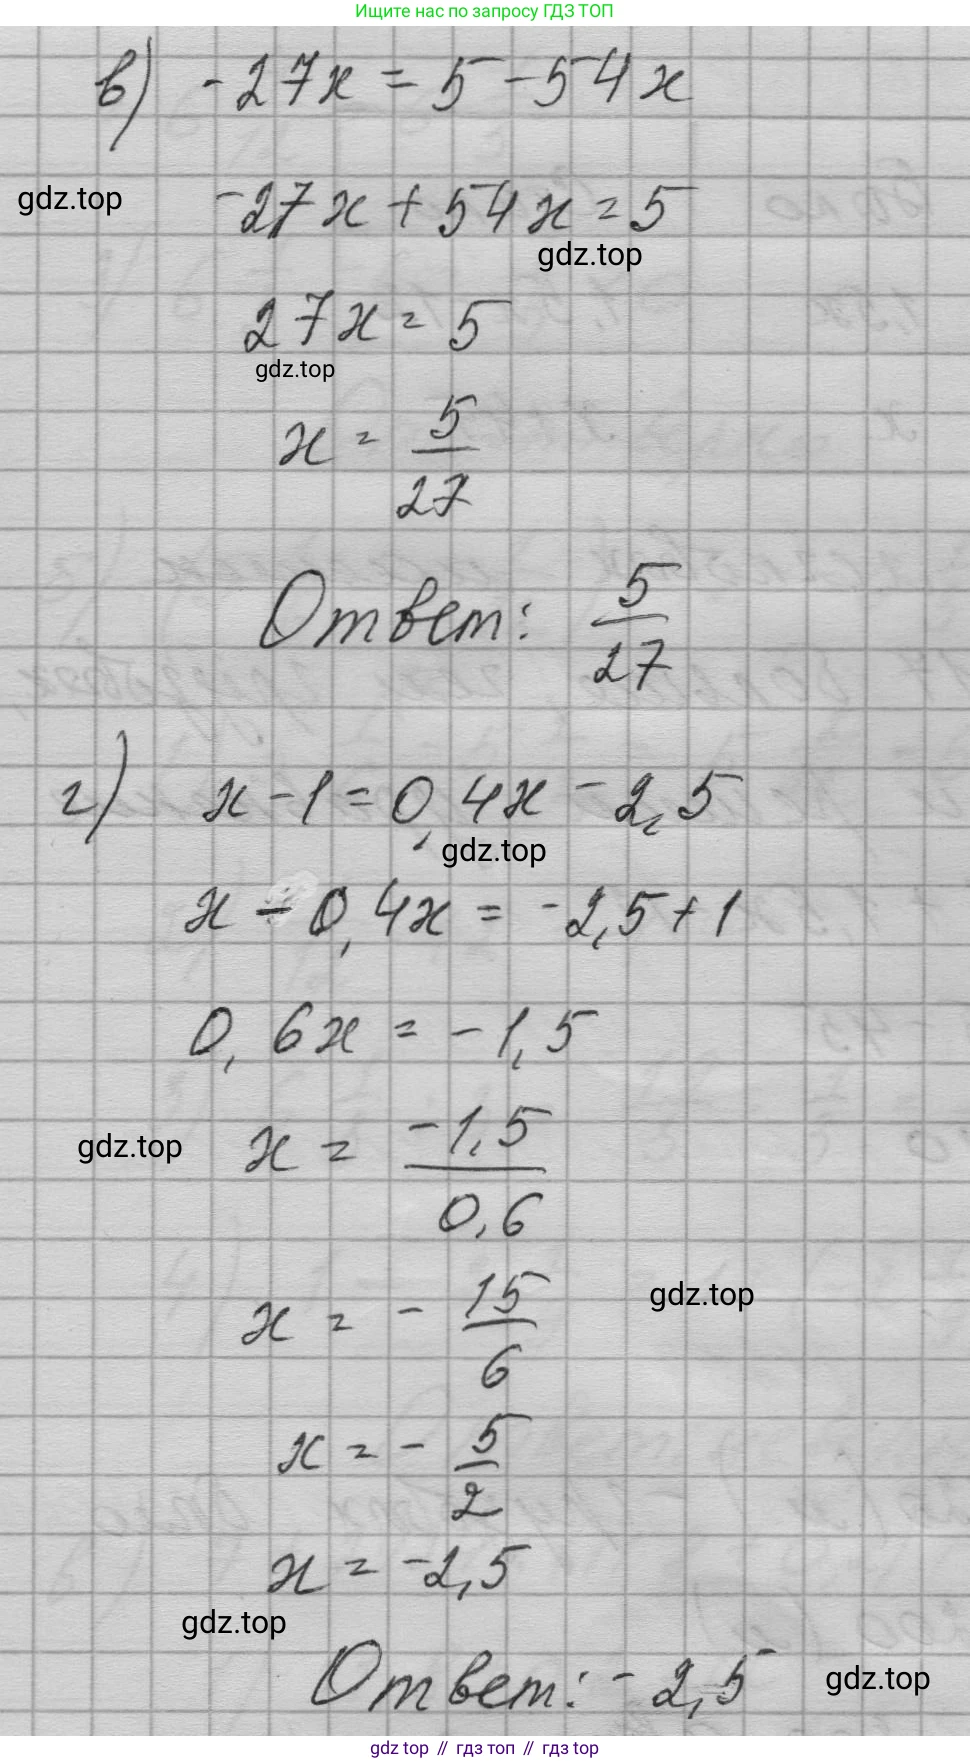 Ищите нас по запросу ГДЗ ТОП
в) -27x = 5 - 54x
gdz.top
-27x + 54x = 5
gdz.top
27x = 5
gdz.top
x = 5/27
Ответ: 5/27
г) x - 1 = 0,4x - 2,5
gdz.top
x - 0,4x = -2,5 + 1
0,6x = -1,5
gdz.top
x = -1,5/0,6
gdz.top
x = - 15/6
x = - 5/2
x = -2,5
gdz.top
Ответ: -2,5
gdz.top
gdz top // гдз топ // гдз top